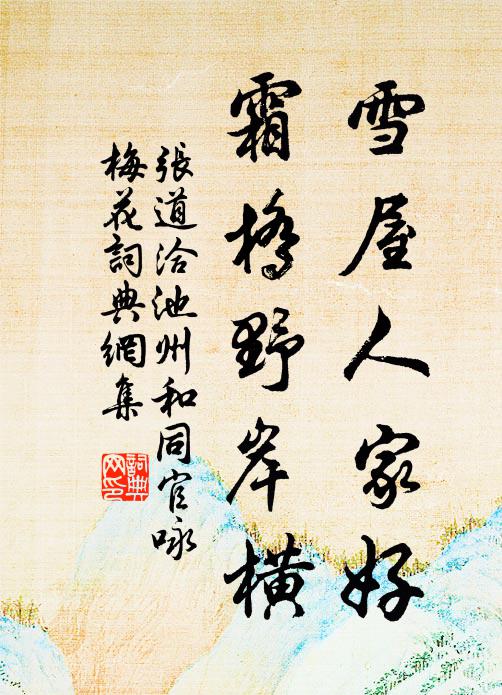 雪屋人家好
霜橋野岸橫
張道洽池州和同官咏
梅花詞典網集
詞典网印